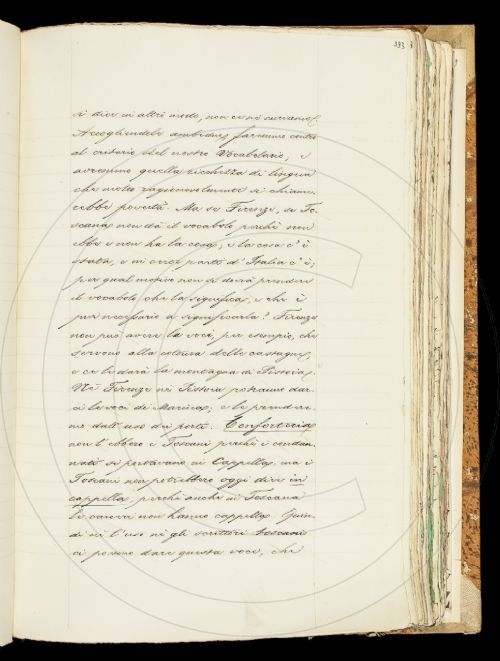 293
si dice in altri modo, non ce ne curiamo.
Accogliendole ambidue, faremmo contro
al criterio del nostro Vocabolario, e
avremmo quella ricchezza di lingua
che molto ragionevolmente si chiame-
rebbe povertà. Ma se Firenze, se To-
scana, non dà il vocabolo perchè non
ebbe e non ha la cosa; e la cosa c'è
stata, e in certe parti d'Italia c'è;
per qual motivo non si dovrà prendere
il vocabolo che la significa, e che è
pur necessario a significarla? Firenze
non può avere le voci, per esempio, che
servono alla coltura delle castagne,
e ce le darà la montagna di Pistoia.
Nè Firenze nè Pistoia potranno dar-
ci le voci di Marina, e le prendere-
mo dall'uso dei porti. Conforteria
non l'ebbero i Toscani perchè i condan-
nati si portavano in Cappella, ma i
Toscani non potrebbero oggi dire in
cappella, perchè anche in Toscana
le carceri non hanno cappella. Quin-
di nè l'uso nè gli scrittori toscani
ci possono dare questa voce, che